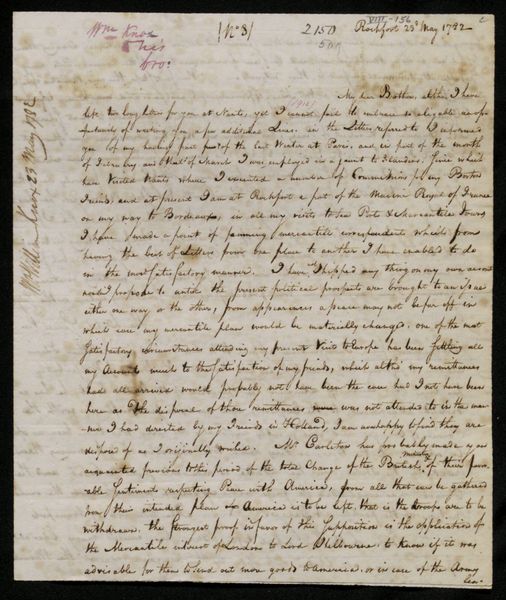 Wm Knox
to his
bro:
(No 8)
2150
509
VIII-156
Rochfort 23d May 1782
Wm Knox 23 May 1782
My dear Brother, altho I have
left two long letters for you at Nants, yet I cannot
of writing you a few additional Lines. in the Letters refered to I informed
you of my having past part of the last Winter at Paris, and in part of the month
of February and Half of March I was employed in a jaunt to Flanders, Since which
have Visited Nants where I executed a number of Commissions for my Boston
Friends, and at present I am at Rochfort a port of the Marine Royal of France
on my way to Bordeaux, in all my visits to Sea Ports & Mercantile Towns
I have made a point of forming mercantile correspondents which from
having the best of Letters from one place to another I have enabled to do
in the most satisfactory manner. I have not Shipped any thing on my own account
nor do I propose to untill the present political prospects are brought to an Issue
either one way or the other, from appearances a peace may not be far off in
which case my mercantile plan would be materially changed, one of the most
satisfactory circumstances attending my present Visit to Europe has been Settling all
my Accounts much to the satisfaction of my friends, which altho' my remittances
had all arrived would probably not have been the case had I not have been
here as the disposal of those remittances was not attended to in the man-
ner I had directed by my Friends in Holland, I am now happy to find they are
disposed of as I originally wished. Mr Carleton has probably made you
acquainted previous to this period of the total Change of the British ministry of their favor-
able Sentiments respecting Peace with America, from all that can be gathered
now their intended plan America is to be left, that is the troops are to be
withdrawn. the strongest proof in favor of this Supposition is the application of
the Mercantile interest of London to Lord Shelbourne to know if it was
advisable for them to send out more goods to America, or in case of the Army